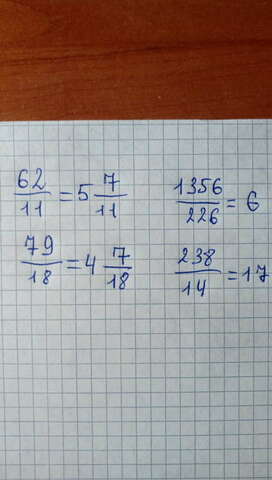 62/11 = 5 7/11
1356/226 = 6
79/18 = 4 7/18
238/14 = 17